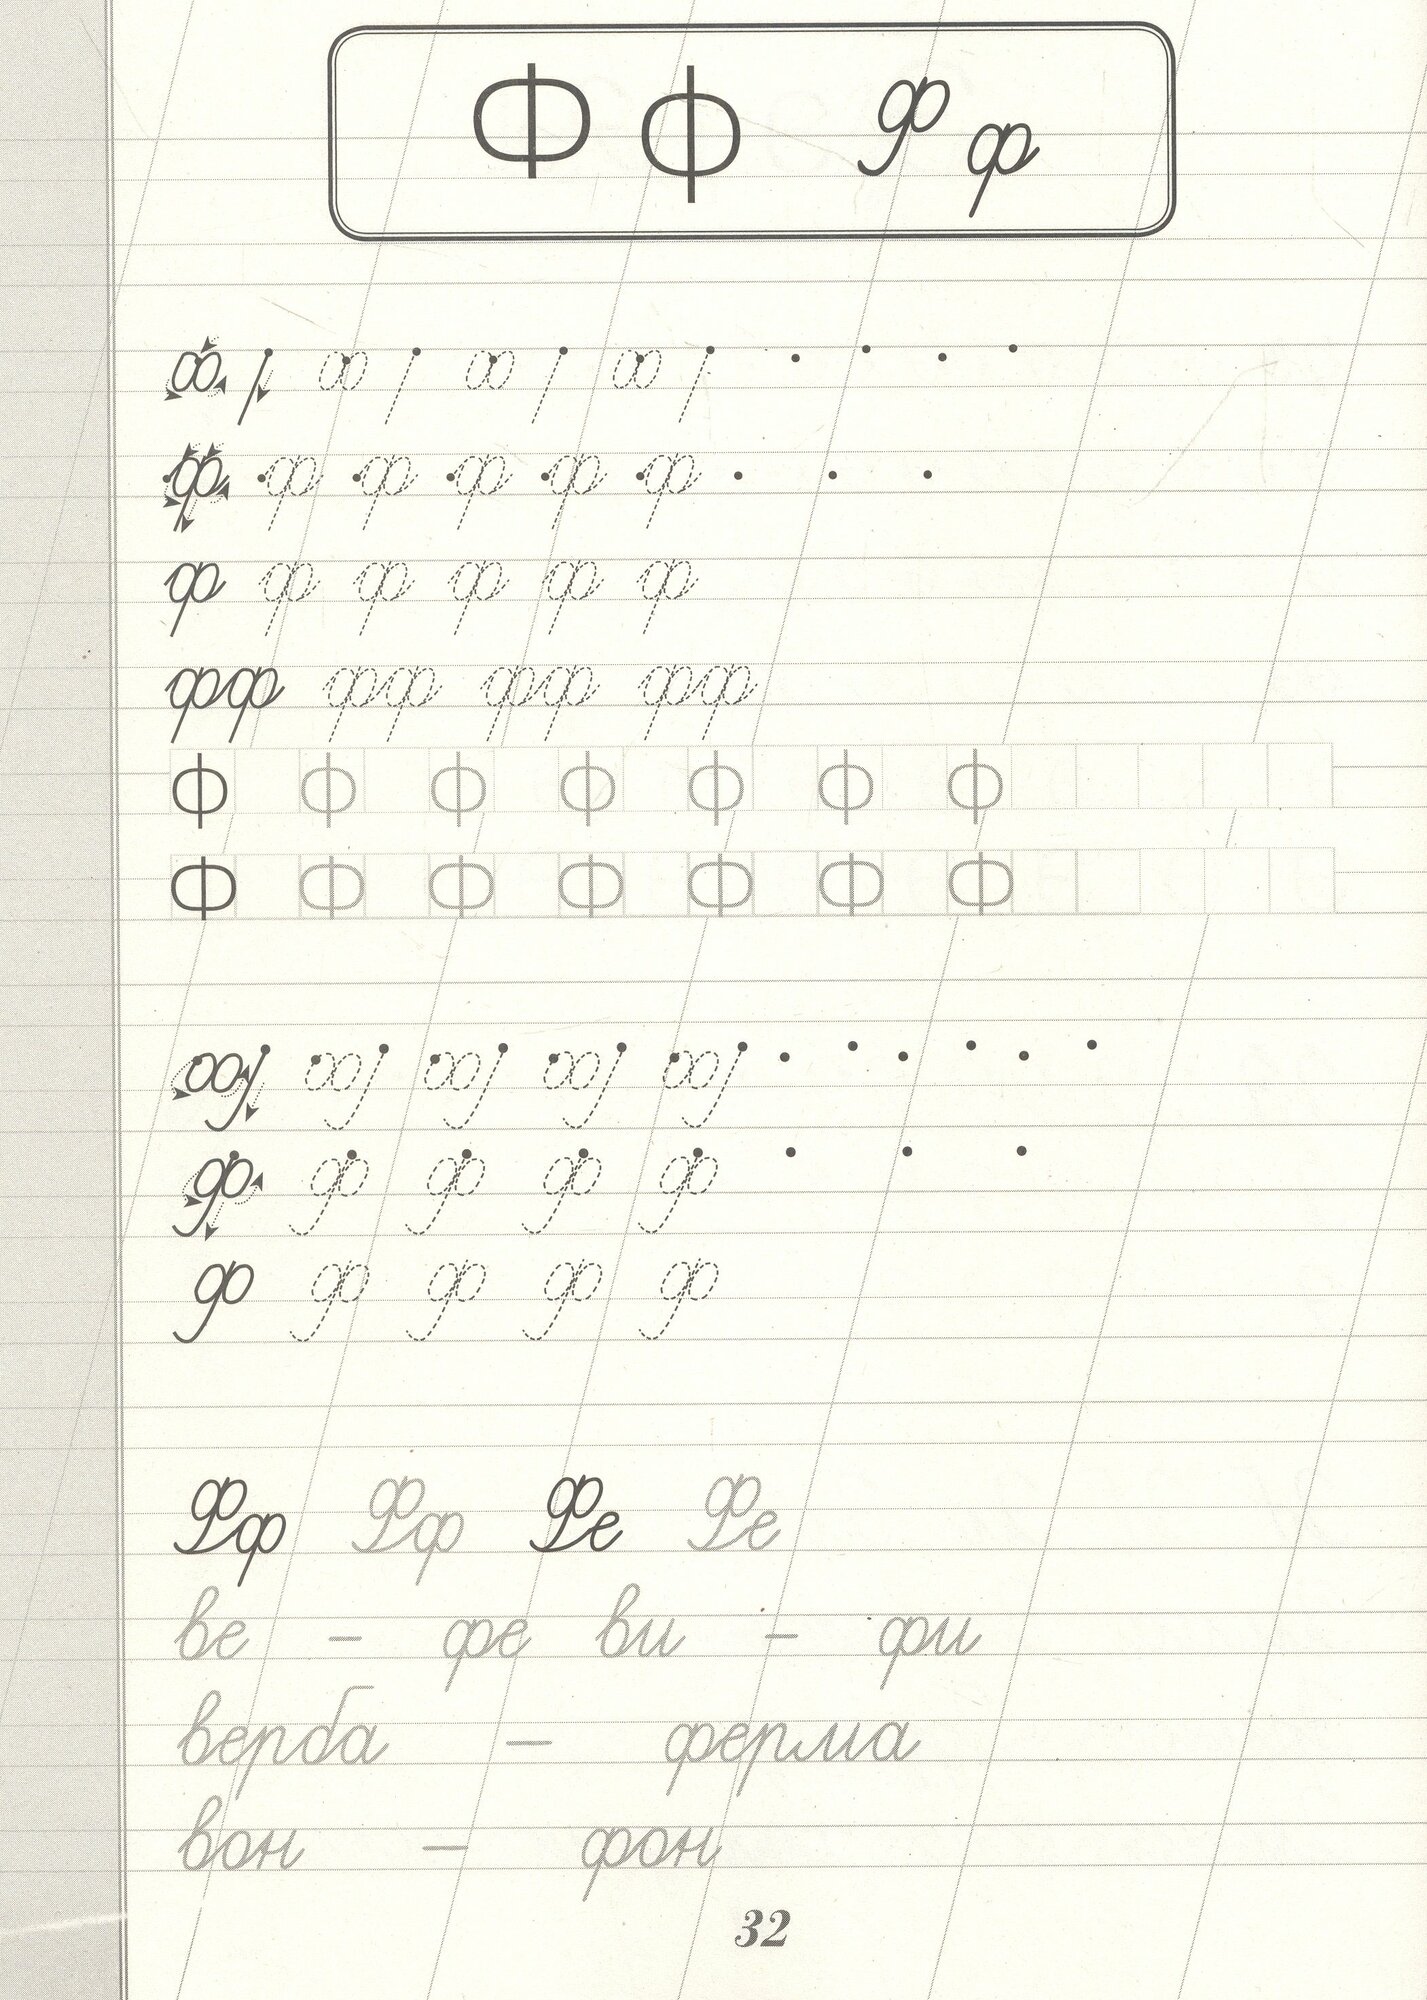 Ф ф Ф ф
ф ф ф ф ф ф
ф ф ф ф ф ф
фф фф фф фф
ф ф ф ф ф ф ф
Ф Ф Ф Ф Ф Ф Ф
Ф Ф Ф Ф Ф
Ф Ф Ф Ф Ф
Фф Фф Фе Фе
ве – фе ви – фи
верба – ферма
вон – фон
32